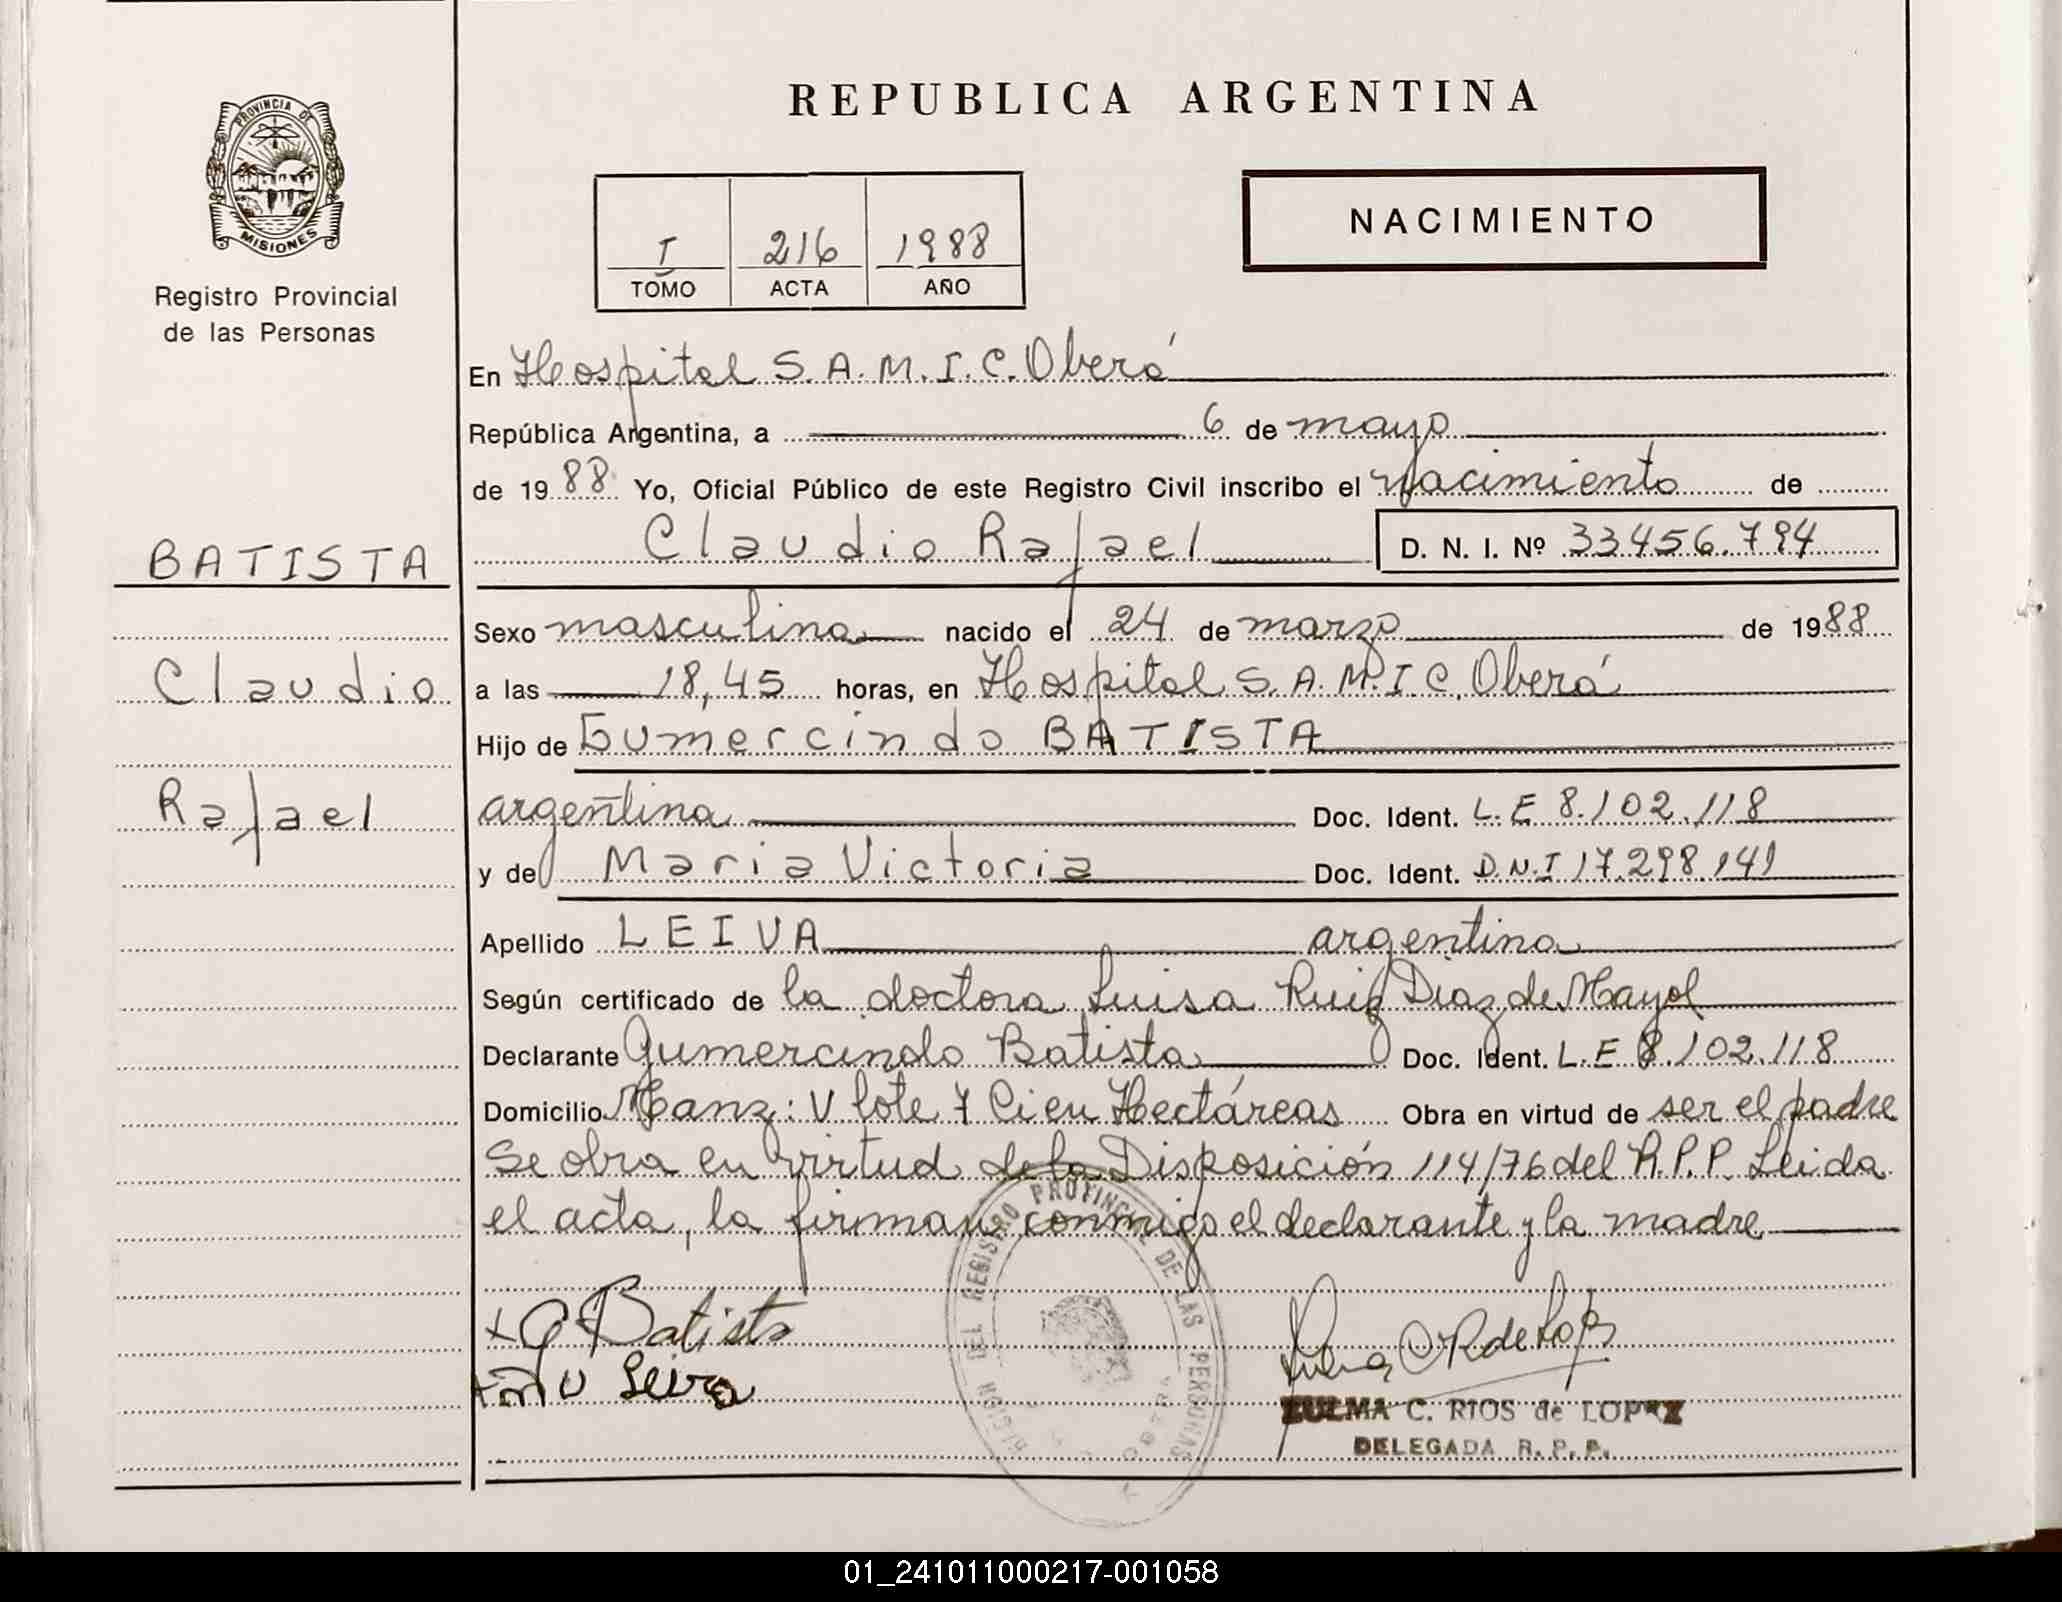 REPUBLICA ARGENTINA
PROVINCIA DE
MISIONES
Registro Provincial
de las Personas
I 216 1988
TOMO ACTA AÑO
NACIMIENTO
En Hospital S.A.M.I.C. Oberá
República Argentina, a 6 de mayo
de 1988 Yo, Oficial Público de este Registro Civil inscribo el Nacimiento de
Claudio Rafael D. N. I. Nº 33456.794
BATISTA
Claudio
Rafael
Sexo masculino nacido el 24 de marzo de 1988
a las 18,45 horas, en Hospital S.A.M.I C. Oberá
Hijo de Gumercindo BATISTA
argentina Doc. Ident. L.E 8.102.118
y de Maria Victoria Doc. Ident. D.N.I 17.298.141
Apellido LEIVA argentina
Según certificado de la doctora Luisa Ruiz Diaz de Mayol
Declarante Gumercindo Batista Doc. Ident. L.E 8.102.118
Domicilio Manz: V lote 7 Cien Hectáreas Obra en virtud de ser el padre
Se obra en virtud de la Disposición 114/76 del R.P.P. Leida
el acta, la firman conmigo el declarante y la madre
REGISTRO PROVINCIAL DE LAS PERSONAS
G Batista
M V Leiva
ZULMA C. RIOS de LOPEZ
DELEGADA R. P. P.
01_241011000217-001058